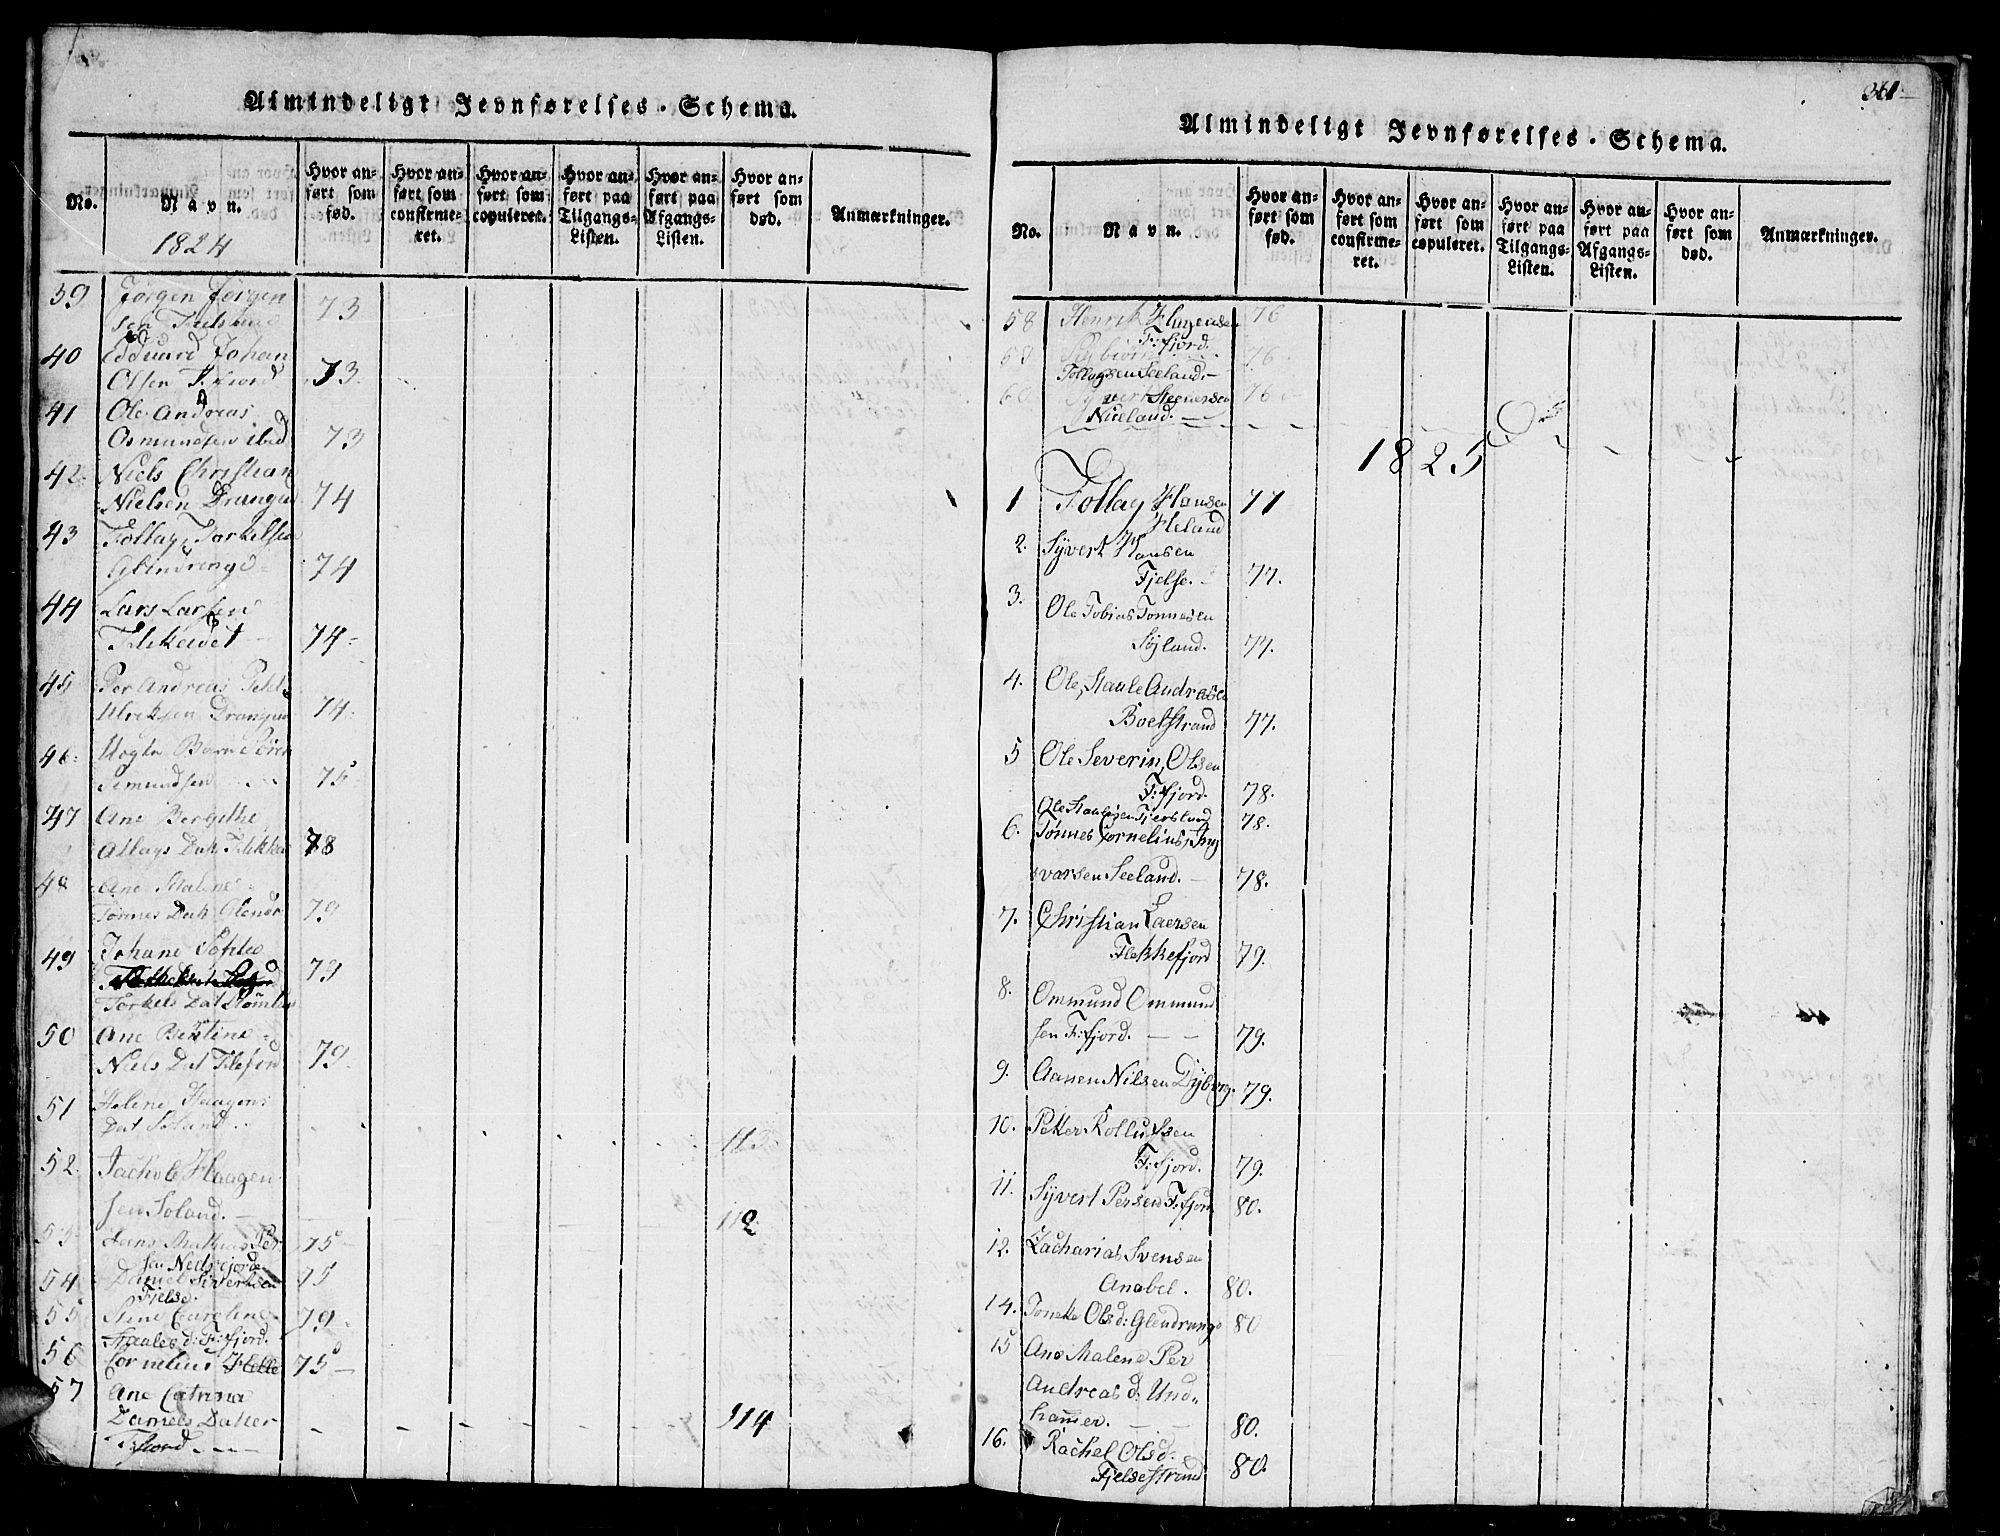 Almindeligt Jevnførelses-Schema.
No.
Navn.
1824
Hvor anført som fød.
Hvor anført som confirmeret.
Hvor anført som copuleret.
Hvor anført paa Tilgangs-Listen.
Hvor anført paa Afgangs-Listen.
Hvor anført som død.
Anmærkninger.
39 Jørgen Jørgen
sen 73
40 Edduard Johan
Olsen F:fiord 73
41 Ole Andreas
Osmundsen ibid 73
42 Niels Christian
Nielsen Drangei 74
43 Tollag Torkelsen
Glendrenge 74
44 Lars Larsen
74
45 Per Andreas
Ulriksen Drangei 74
46 Barn
75
47 Ane Bergithe
Atlags Dat 78
48 Ane Malene
Tønnes Dat Glendr 79
49 Johane Sophie 79
Torkels Dat
50 Ane Bertine
Niels Dat 79
51 Helene Haagens
Dat Soland 112
52 Jachob Haagen
sen Soland. 112
53 Hans Mathias Per
sen 75
54 Daniel Siverhsen 75
Fjelse
55 Stine Caroline 79
Staales d: F:fjord.
56 Cornelius Helle 75
57 Ane Catrina
Daniels Datter 114
F:fiord
361
Almindeligt Jevnførelses-Schema.
No.
Navn.
Hvor anført som fød.
Hvor anført som confirmeret.
Hvor anført som copuleret.
Hvor anført paa Tilgangs-Listen.
Hvor anført paa Afgangs-Listen.
Hvor anført som død.
Anmærkninger.
58 Henrik 76
F:fjord.
59 76
Tollagsen Seeland.
60 Syvert Steenersen 76
Nieland.
1825
1 Tollag Hansen 77
Heland
2. Syvert Hansen
Fjelse. 77.
3. Ole Tobias Tonnesen
Søyland. 77.
4. Ole Staale Andreasen
Boelstrand 77.
5 Ole Severin Olsen
F:fjord. 78.
Ole Staalesen Fjersland 78.
6. Tønnes Cornelius Ing
varsen Seeland. 78.
7. Christian Laersen
Flekkefjord 79.
8. Ommund Ommund
sen F:fjord. 79.
9. Aanen Nilsen Dyberg. 79.
10. Petter Rollufsen
F:fjord. 79.
11. Syvert Persen F:fjord 80.
12. Zacharias Svensen
Anabel. 80.
14. Joneke Olsd: Glendrange 80
15 Ane Malene Per
Andreas d: Und-
hammer. 80.
16. Rachel Olsd:
Fjelsestrand 80.